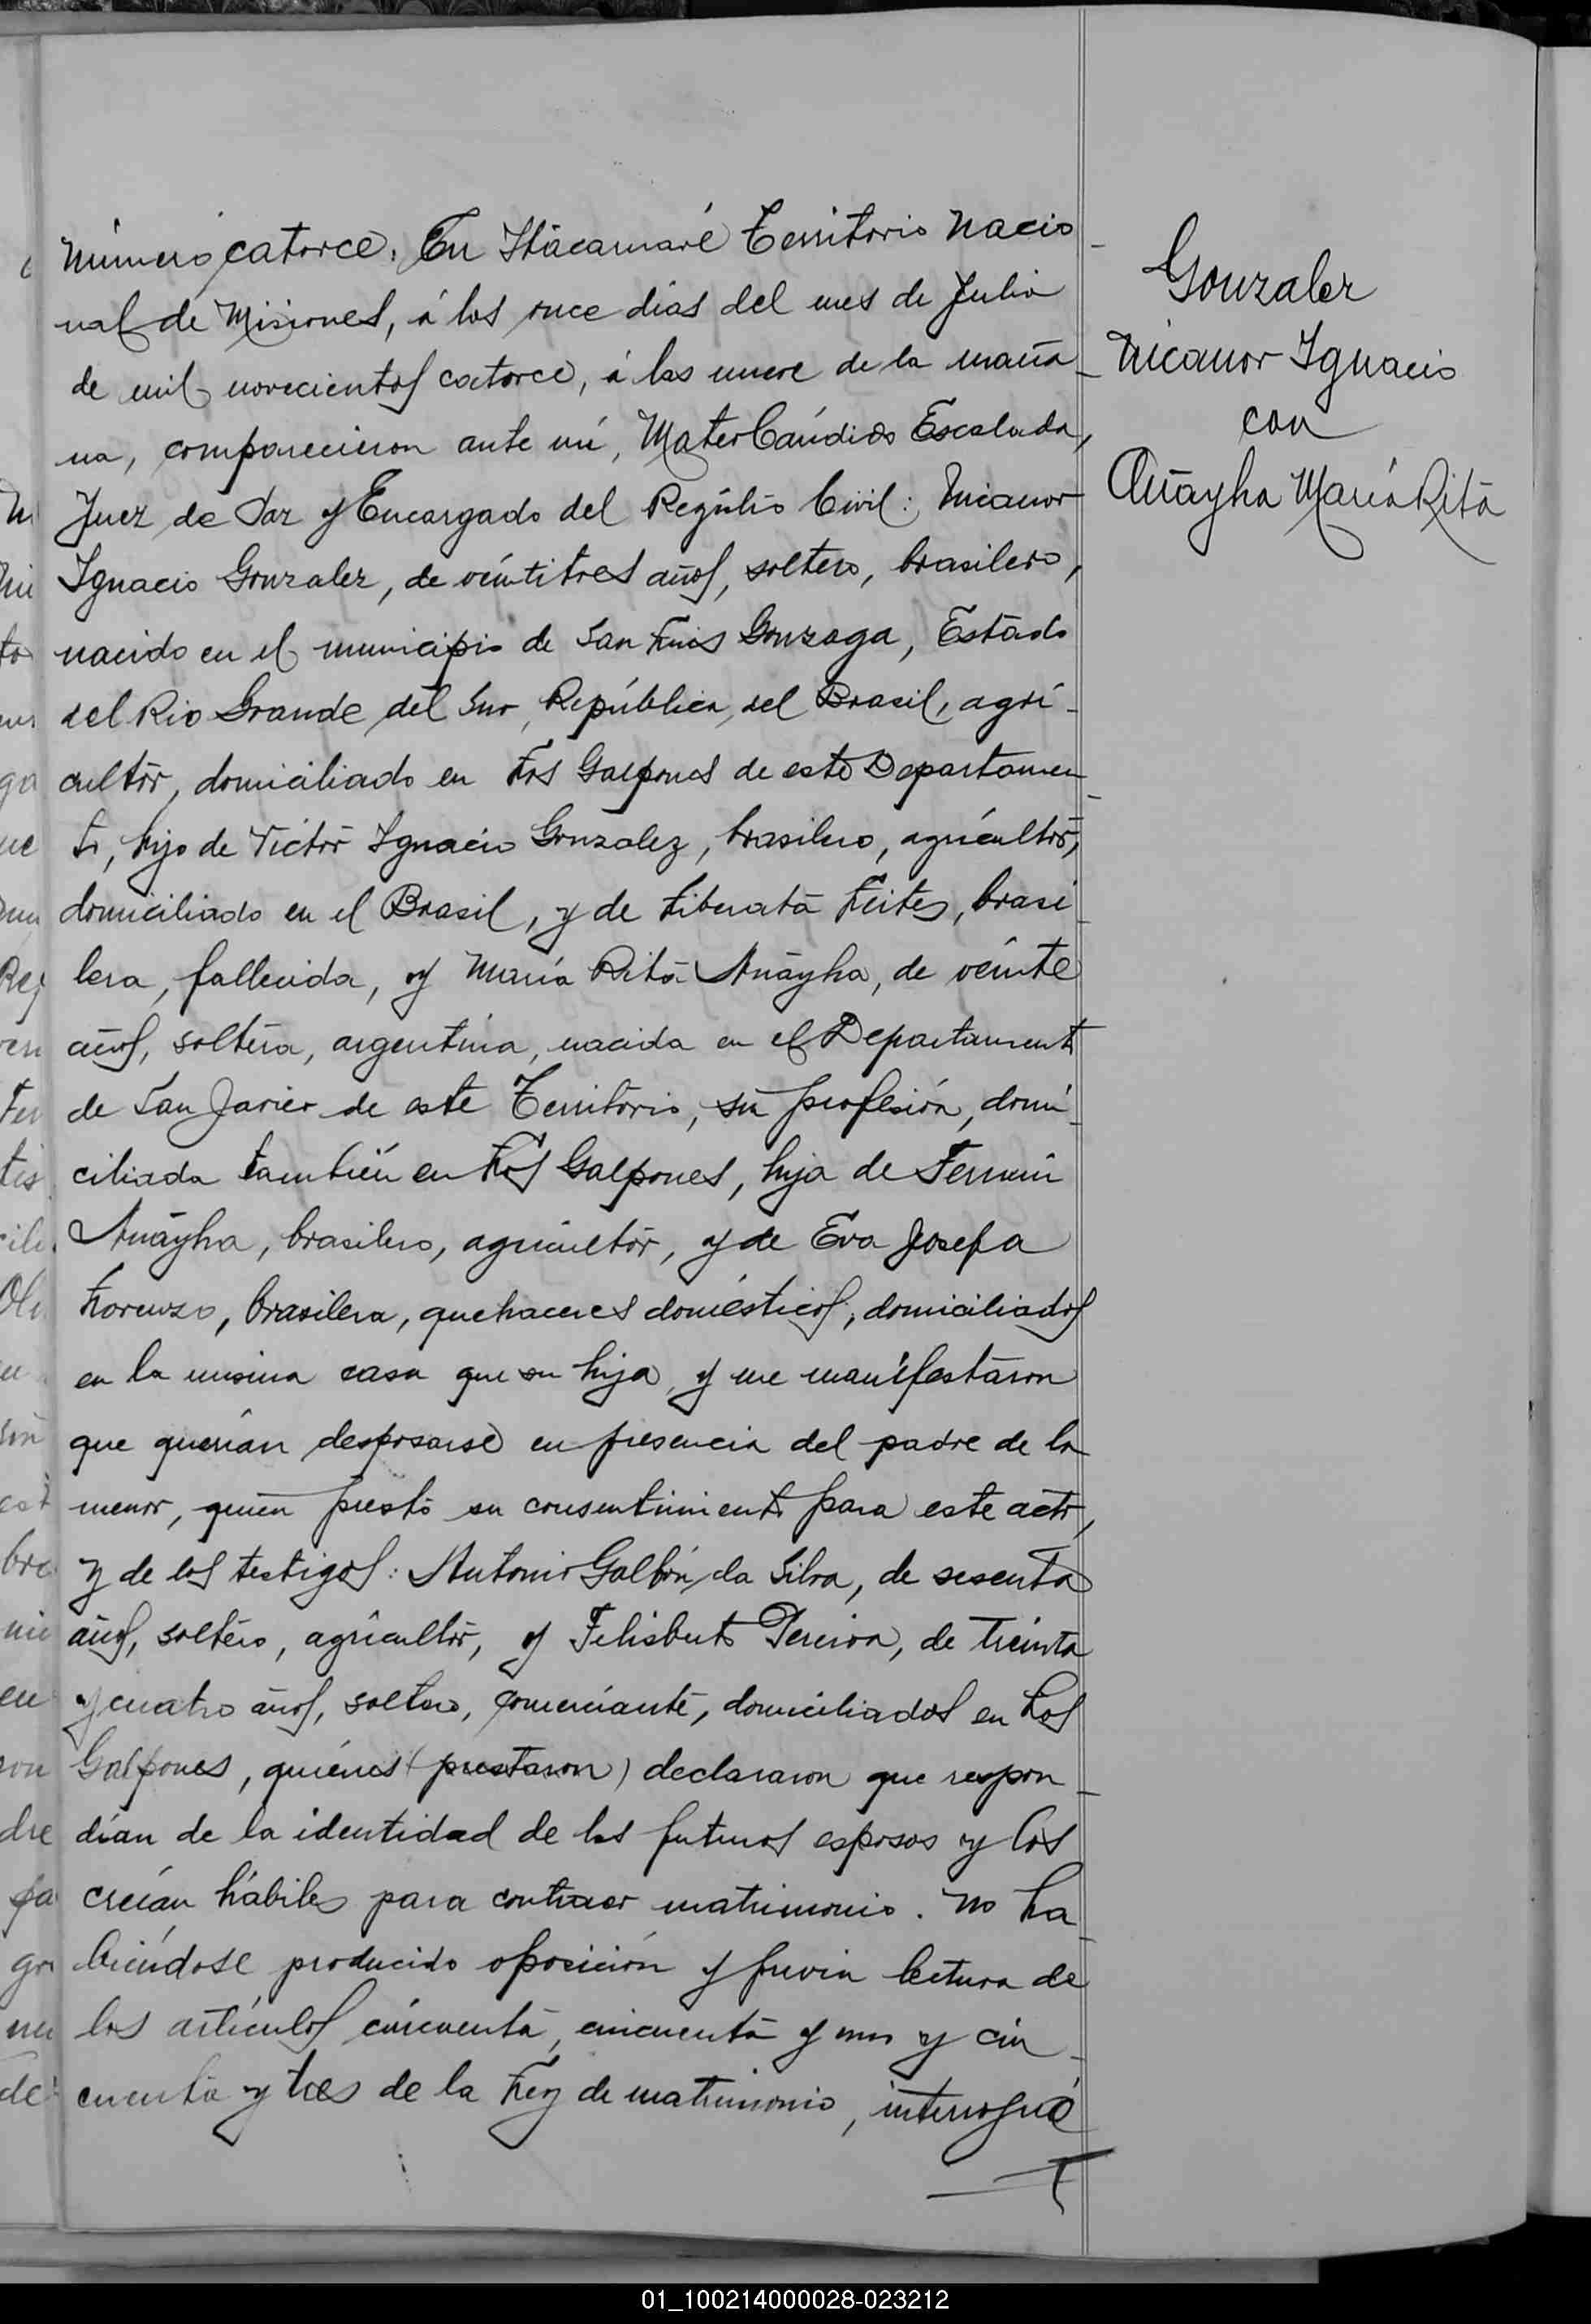 Número catorce. En Itacaruaré Territorio Nacio
nal de Misiones, á los once dias del mes de Julio
de mil novecientos catorce, á las nueve de la maña
na, comparecieron ante mi, Mateo Cándido Escalada,
Juez de Paz y Encargado del Registro Civil: Nicanor
Ignacio Gonzalez, de veintitres años, soltero, brasilero,
nacido en el municipio de San Luis Gonzaga, Estado
del Rio Grande del Sur, República del Brasil, agri
cultor, domiciliado en Los Galpones de este Departamen
to, hijo de Victor Ignacio Gonzalez, brasilero, agricultor,
domiciliado en el Brasil, y de Liberata Leites, brasi
lera, fallecida, y María Rita Anayha, de veinte
años, soltera, argentina, nacida en el Departamento
de San Javier de este Territorio, sin profesión, domi
ciliada también en Los Galpones, hija de Fermin
Anayha, brasilero, agricultor, y de Eva Josefa
Lorenzo, brasilera, quehaceres domésticos, domiciliados
en la misma casa que su hija, y me manifestaron
que querían desposarse en presencia del padre de la
menor, quien prestó su consentimiento para este acto,
y de los testigos: Antonio Galbón da Silva, de sesenta
años, soltero, agricultor, y Felisberto Pereira, de treinta
y cuatro años, soltero, comerciante, domiciliados en Los
Galpones, quiénes (prestaron) declararon que respon
dían de la identidad de los futuros esposos y los
creían hábiles para contraer matrimonio. No ha
biéndose producido oposición y previa lectura de
los artículos cincuenta, cincuenta y uno y cin
cuenta y tres de la Ley de matrimonio, interrogué
Gonzalez
Nicanor Ignacio
con
Anayha María Rita
01_100214000028-023212